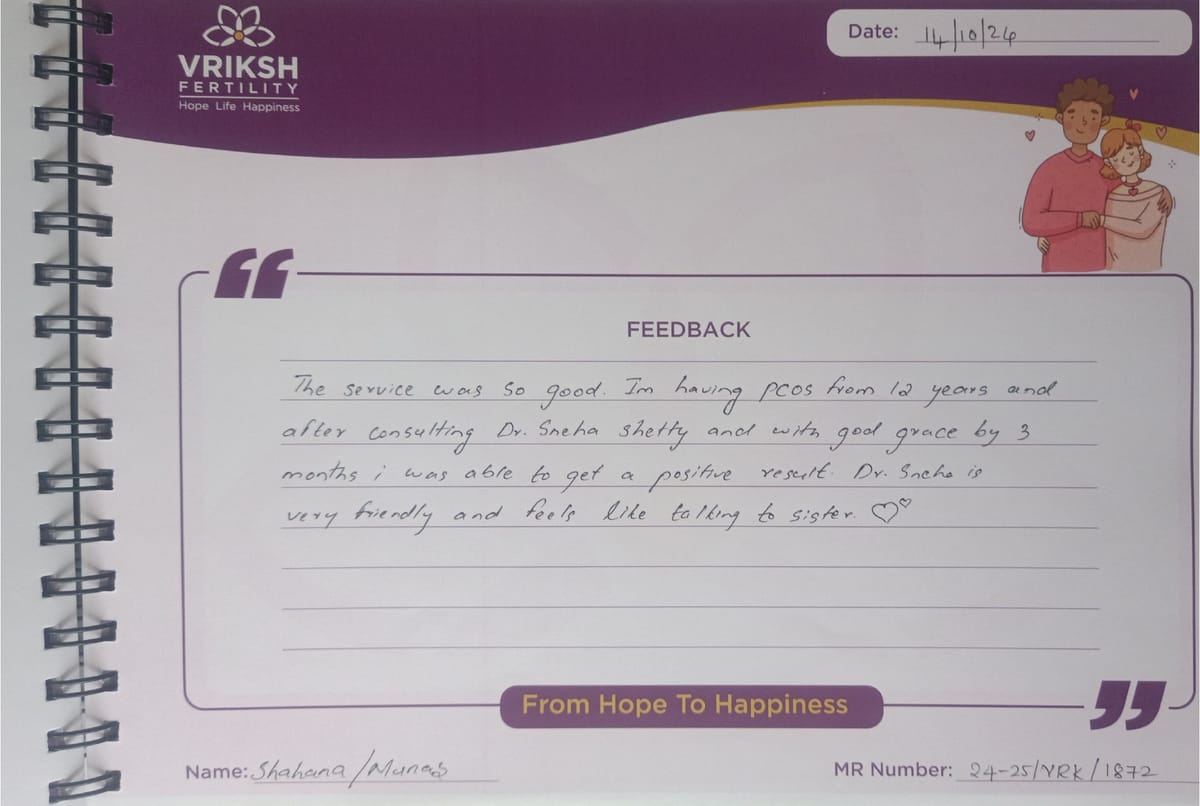 VRIKSH
FERTILITY
Hope Life Happiness
Date: 14/10/24
FEEDBACK
The service was so good. Im having PCOS from 12 years and
after consulting Dr. Sneha Shetty and with god grace by 3
months i was able to get a positive result. Dr. Sneha is
very friendly and feels like talking to sister.
From Hope To Happiness
Name: Shahana/Munab
MR Number: 24-25/VRK/1872